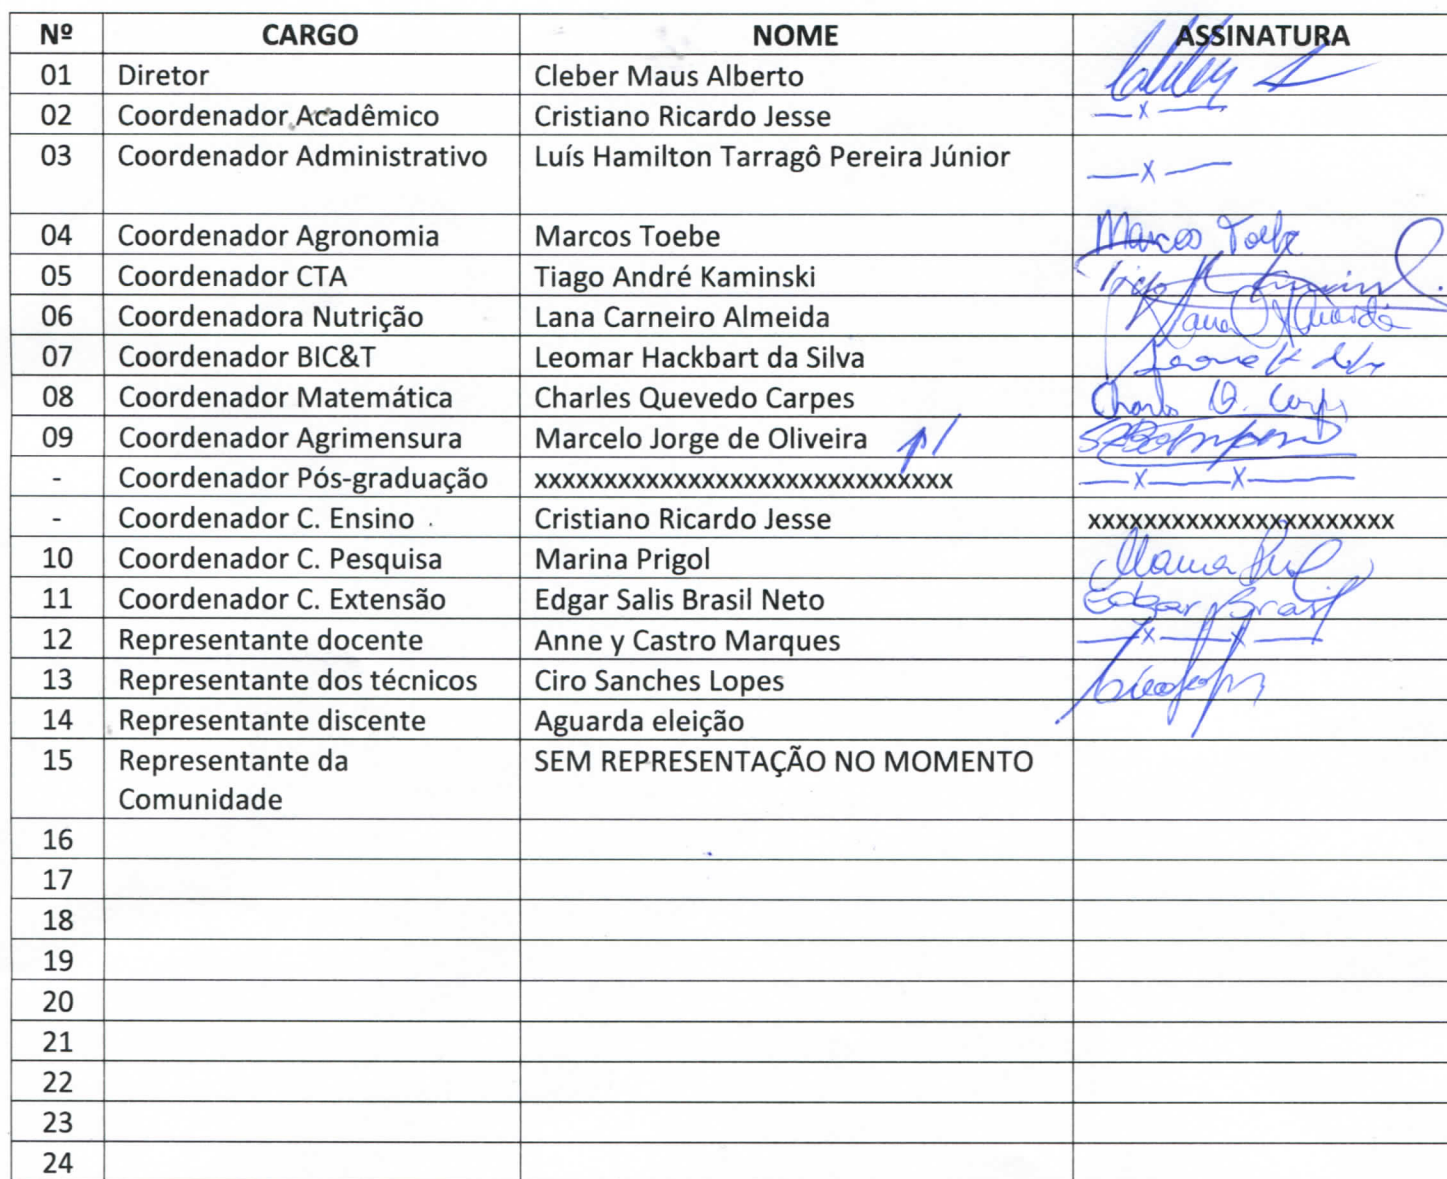 Nº CARGO NOME ASSINATURA
01 Diretor Cleber Maus Alberto
02 Coordenador Acadêmico Cristiano Ricardo Jesse —x—
03 Coordenador Administrativo Luís Hamilton Tarragô Pereira Júnior —x—
04 Coordenador Agronomia Marcos Toebe Marcos Toebe
05 Coordenador CTA Tiago André Kaminski
06 Coordenadora Nutrição Lana Carneiro Almeida Lana Almeida
07 Coordenador BIC&T Leomar Hackbart da Silva
08 Coordenador Matemática Charles Quevedo Carpes Charles Q. Carpes
09 Coordenador Agrimensura Marcelo Jorge de Oliveira
- Coordenador Pós-graduação xxxxxxxxxxxxxxxxxxxxxxxxxxxxxx —x—x—
- Coordenador C. Ensino Cristiano Ricardo Jesse xxxxxxxxxxxxxxxxxxxxxx
10 Coordenador C. Pesquisa Marina Prigol
11 Coordenador C. Extensão Edgar Salis Brasil Neto Edgar Brasil
12 Representante docente Anne y Castro Marques —x—x—
13 Representante dos técnicos Ciro Sanches Lopes
14 Representante discente Aguarda eleição
15 Representante da SEM REPRESENTAÇÃO NO MOMENTO
Comunidade
16
17
18
19
20
21
22
23
24